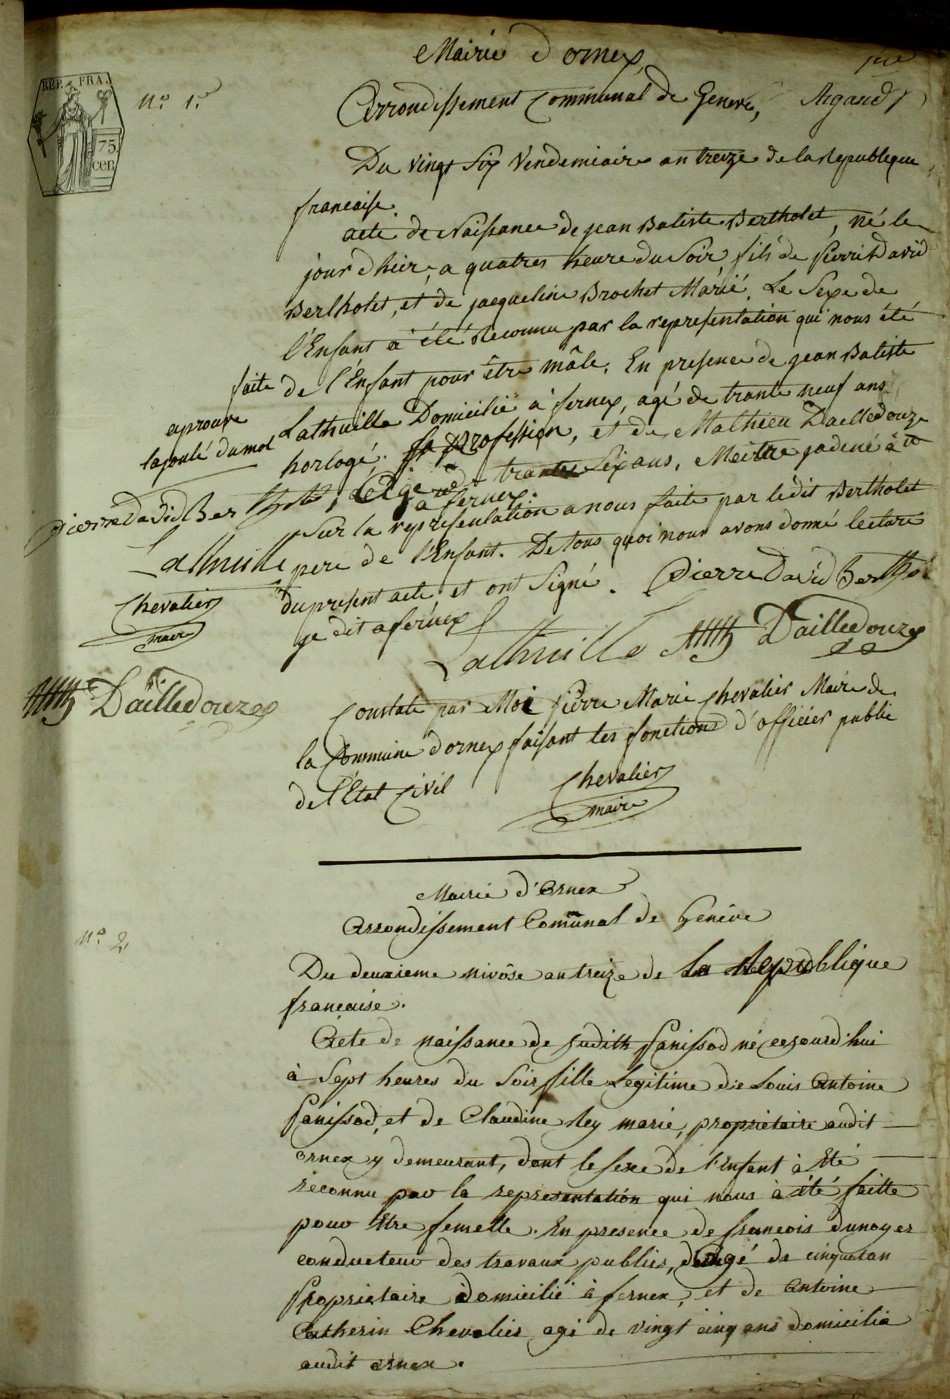 Mairie d'ornex,
REP. FRA.
75 cen
N.º 1.er
Arrondissement Communal de Geneve, Argaud
Du vingt Six Vendemiaire an treize de la Republique
francaise.
acte de Naissance de jean Batiste Bertholet, né le
jour d hier, a quatres heure du Soir fils de pierre David
Bertholet, et de jacqueline Brochet Marié. Le Sexe de
l'Enfant à été Reconnu par la representation qui nous été
faite de l'Enfant pour être mâle. En presence de jean Batiste
aprouve
Lathuille Domicilié a fernex, agé de trante neuf ans
la
horlogé, profession, et de Mathieu Dailledouze
Agé de trante Six ans, Meitre
a fernex.
Pierre David Berthol
Sur la representation a nous faite par ledit Bertholet
Lathuille
pere de l'Enfant. De tous quoi nous avons donné lecture
Chevalier
maire
du present acte et ont Signé. Pierre David Berthol
je dit a fernex
Lathuille Dailledouze
Dailledouze
Constaté par Moi Pierre Marie Chevalier Maire de
la Commune d'ornex faisant les fonctions d'officier public
de l'Etat Civil
Chevalier
maire
Mairie d'Ornex
Arrondissement Comunal de Genève
N.º 2
Du deuxieme nivôse an treize de la Republique
française.
Acte de naissance de Judith Panissod né cejourd'hui
à Sept heures du Soir fille Legitime de Louis Antoine
Panissod, et de Claudine Rey marié, propriétaire audit
ornex y demeurant, dont le sexe de l'Enfant à Eté
réconnu par la representation qui nous à été faitte
pour Etre femelle. En presence de francois dunoyer
conducteur des travaux publics, agé de cinquetan
Proprietaire domicilié à fernex, et de Antoine
Catherin Chevalier agé de vingt cinq ans domicilié
audit ornex.